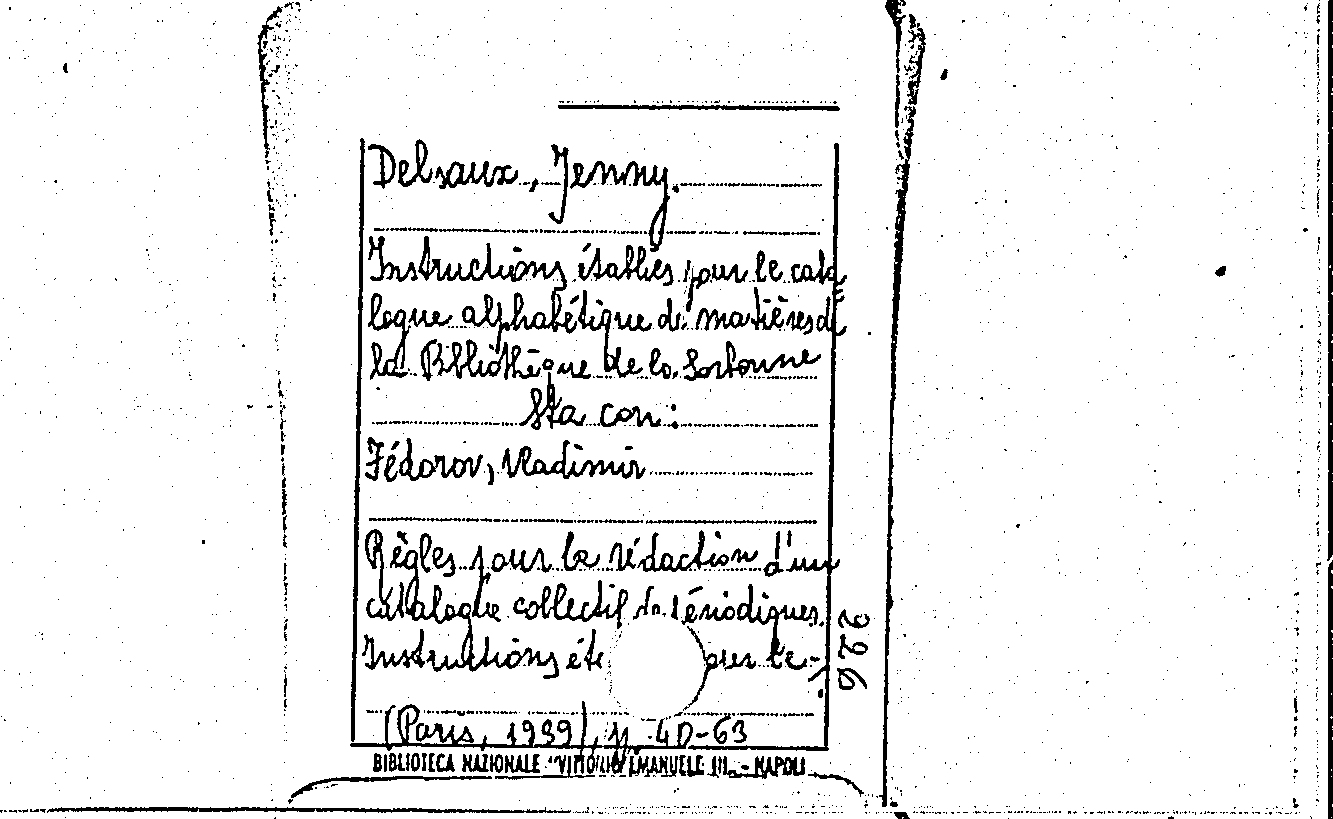 Delsaux, Jenny.
Instructions établies pour le cata
logue alphabétique de matières de
la Bibliothèque de la Sorbonne
Sta con:
Fédorov, Vladimir
Règles pour la rédaction d'un
catalogue collectif de périodiques.
Instructions éta pour le-
(Paris, 1939), pp. 40-63
226
BIBLIOTECA NAZIONALE "VITTORIO EMANUELE III" - NAPOLI